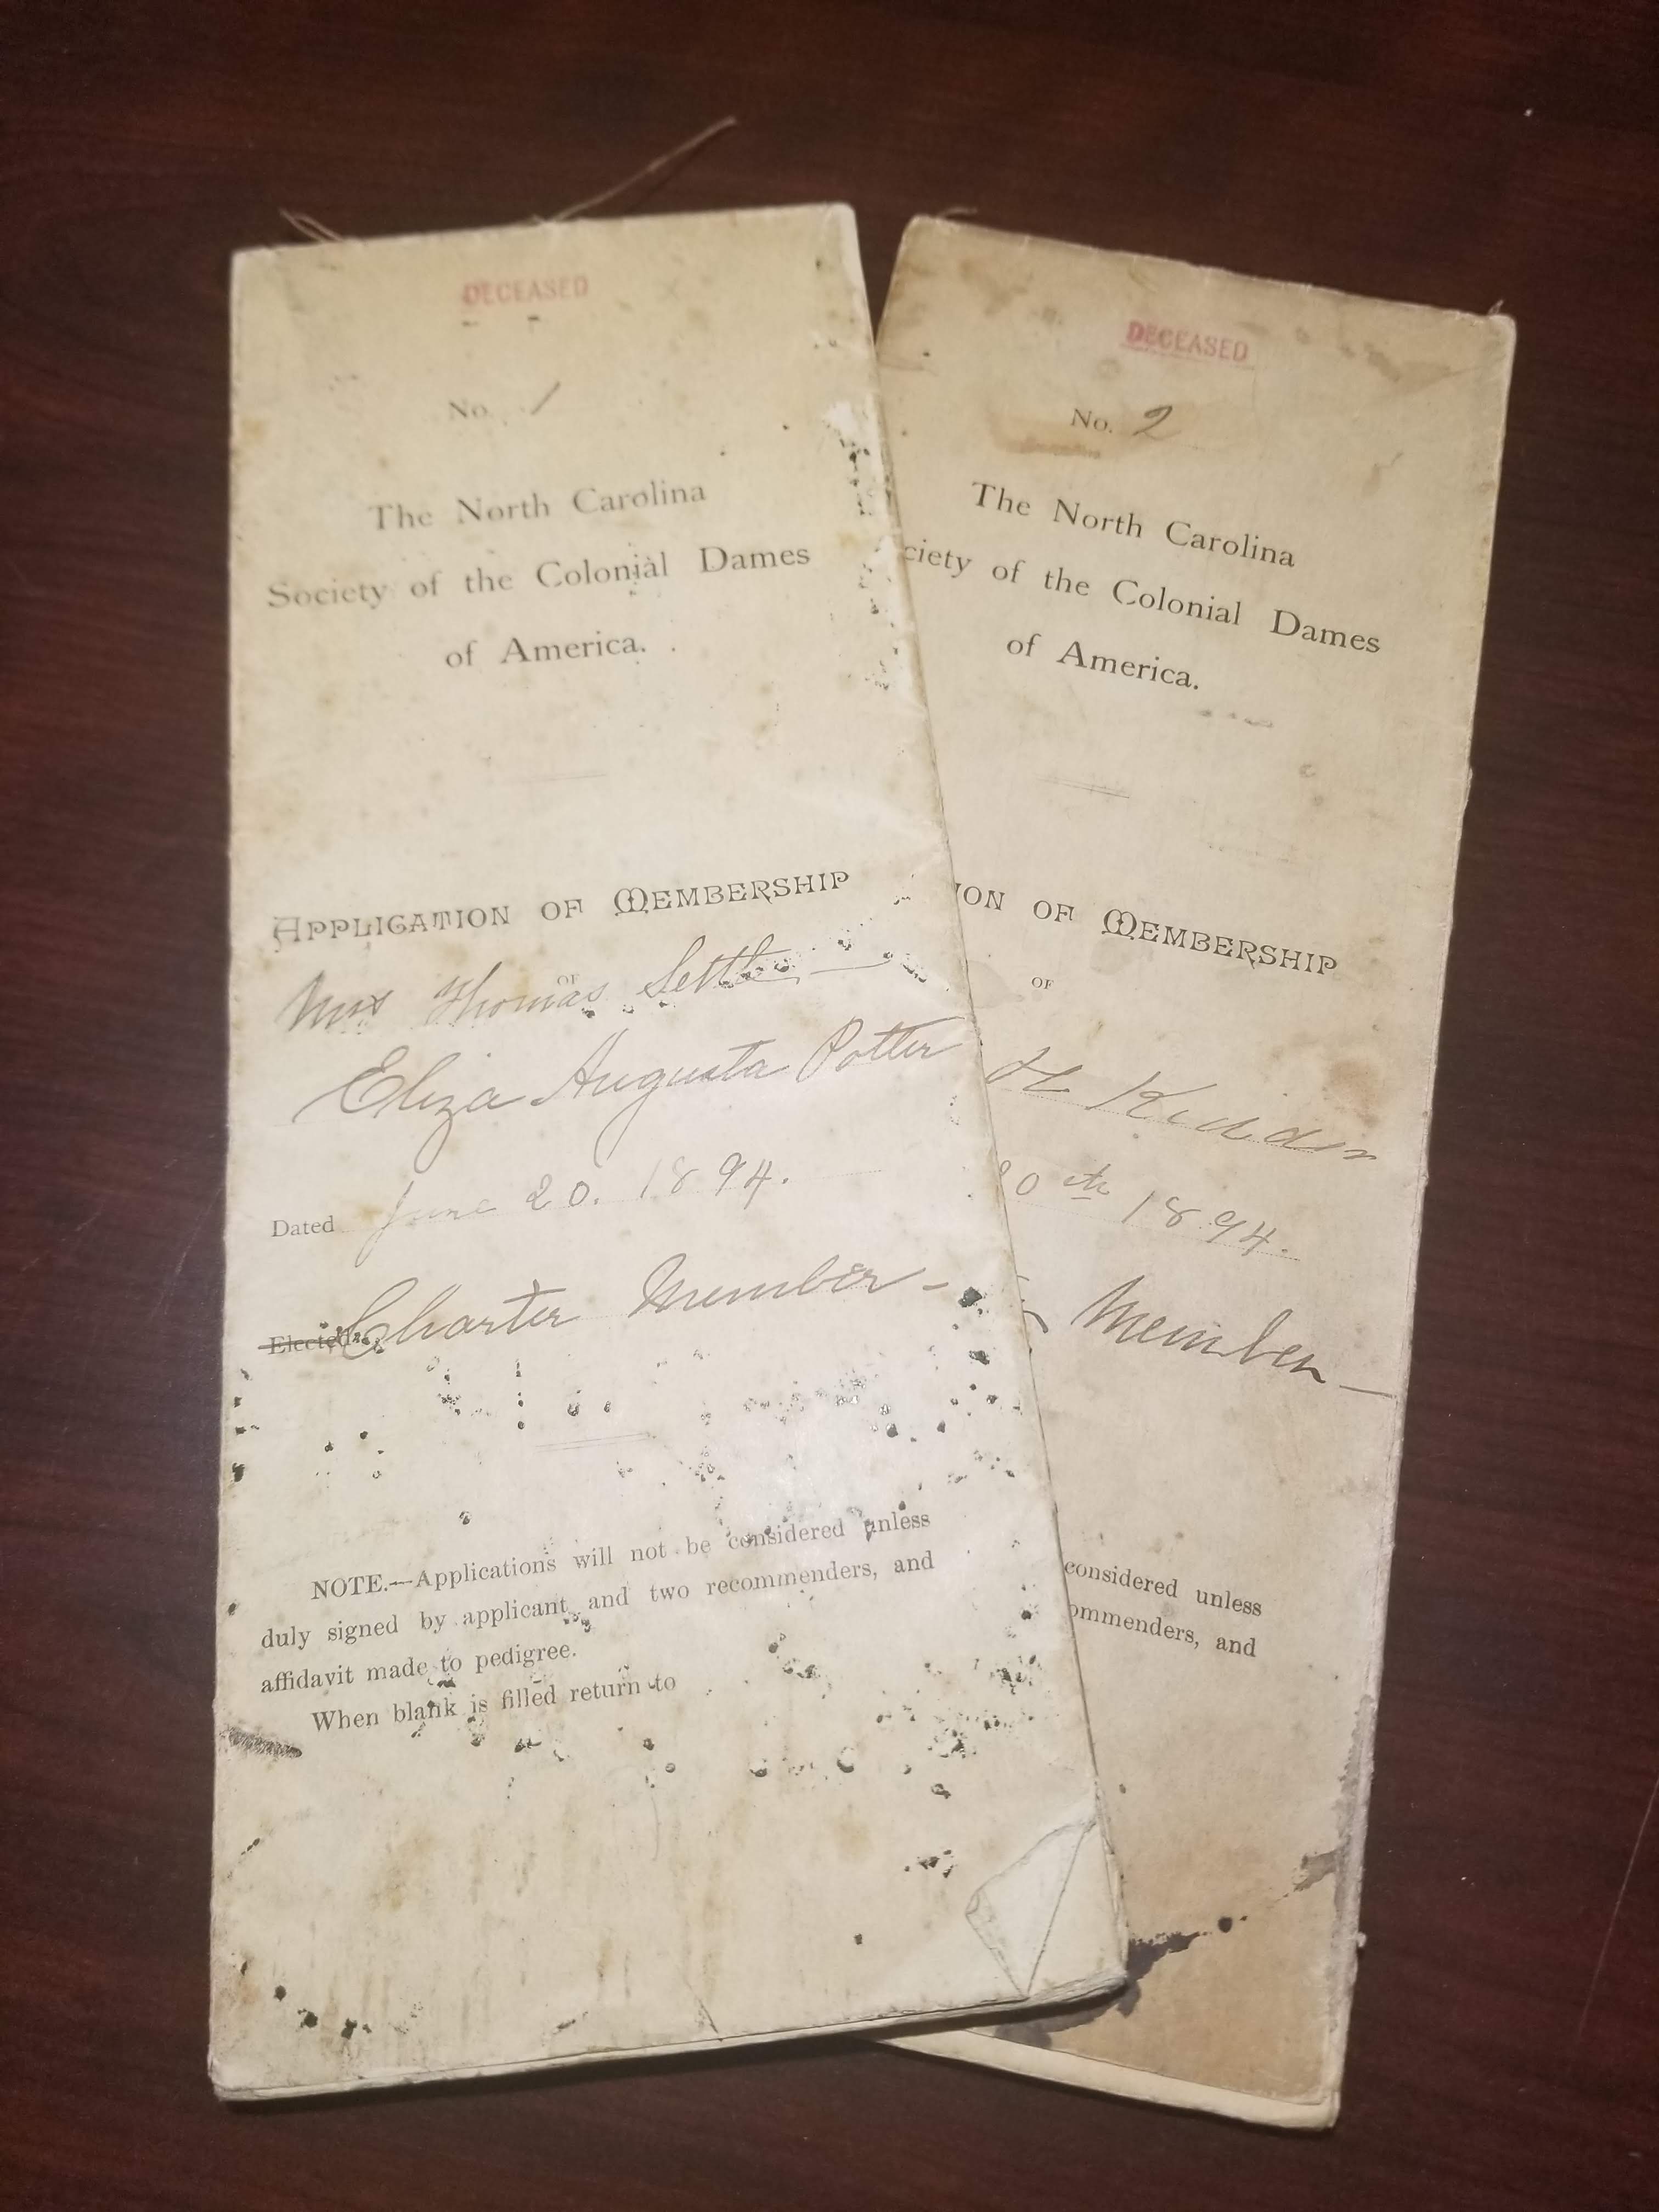 DECEASED
No. 1
The North Carolina
Society of the Colonial Dames
of America.
APPLICATION OF MEMBERSHIP
OF
Mrs Thomas Settle
Eliza Augusta Potter
Dated June 20. 1894.
Elected Charter Member -
NOTE.—Applications will not be considered unless
duly signed by applicant and two recommenders, and
affidavit made to pedigree.
When blank is filled return to
DECEASED
No. 2
The North Carolina
ciety of the Colonial Dames
of America.
ION OF MEMBERSHIP
OF
H Kidder
20th 1894.
Member -
considered unless
ommenders, and